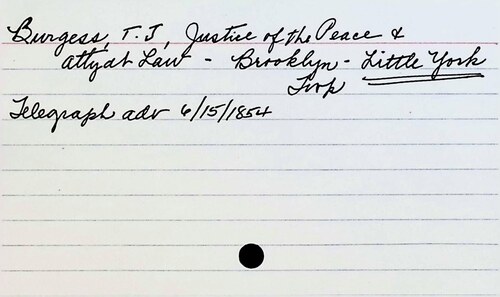 Burgess, T. J, Justice of the Peace &
atty at Law - Brooklyn - Little York
Twp
Telegraph adv 6/15/1854